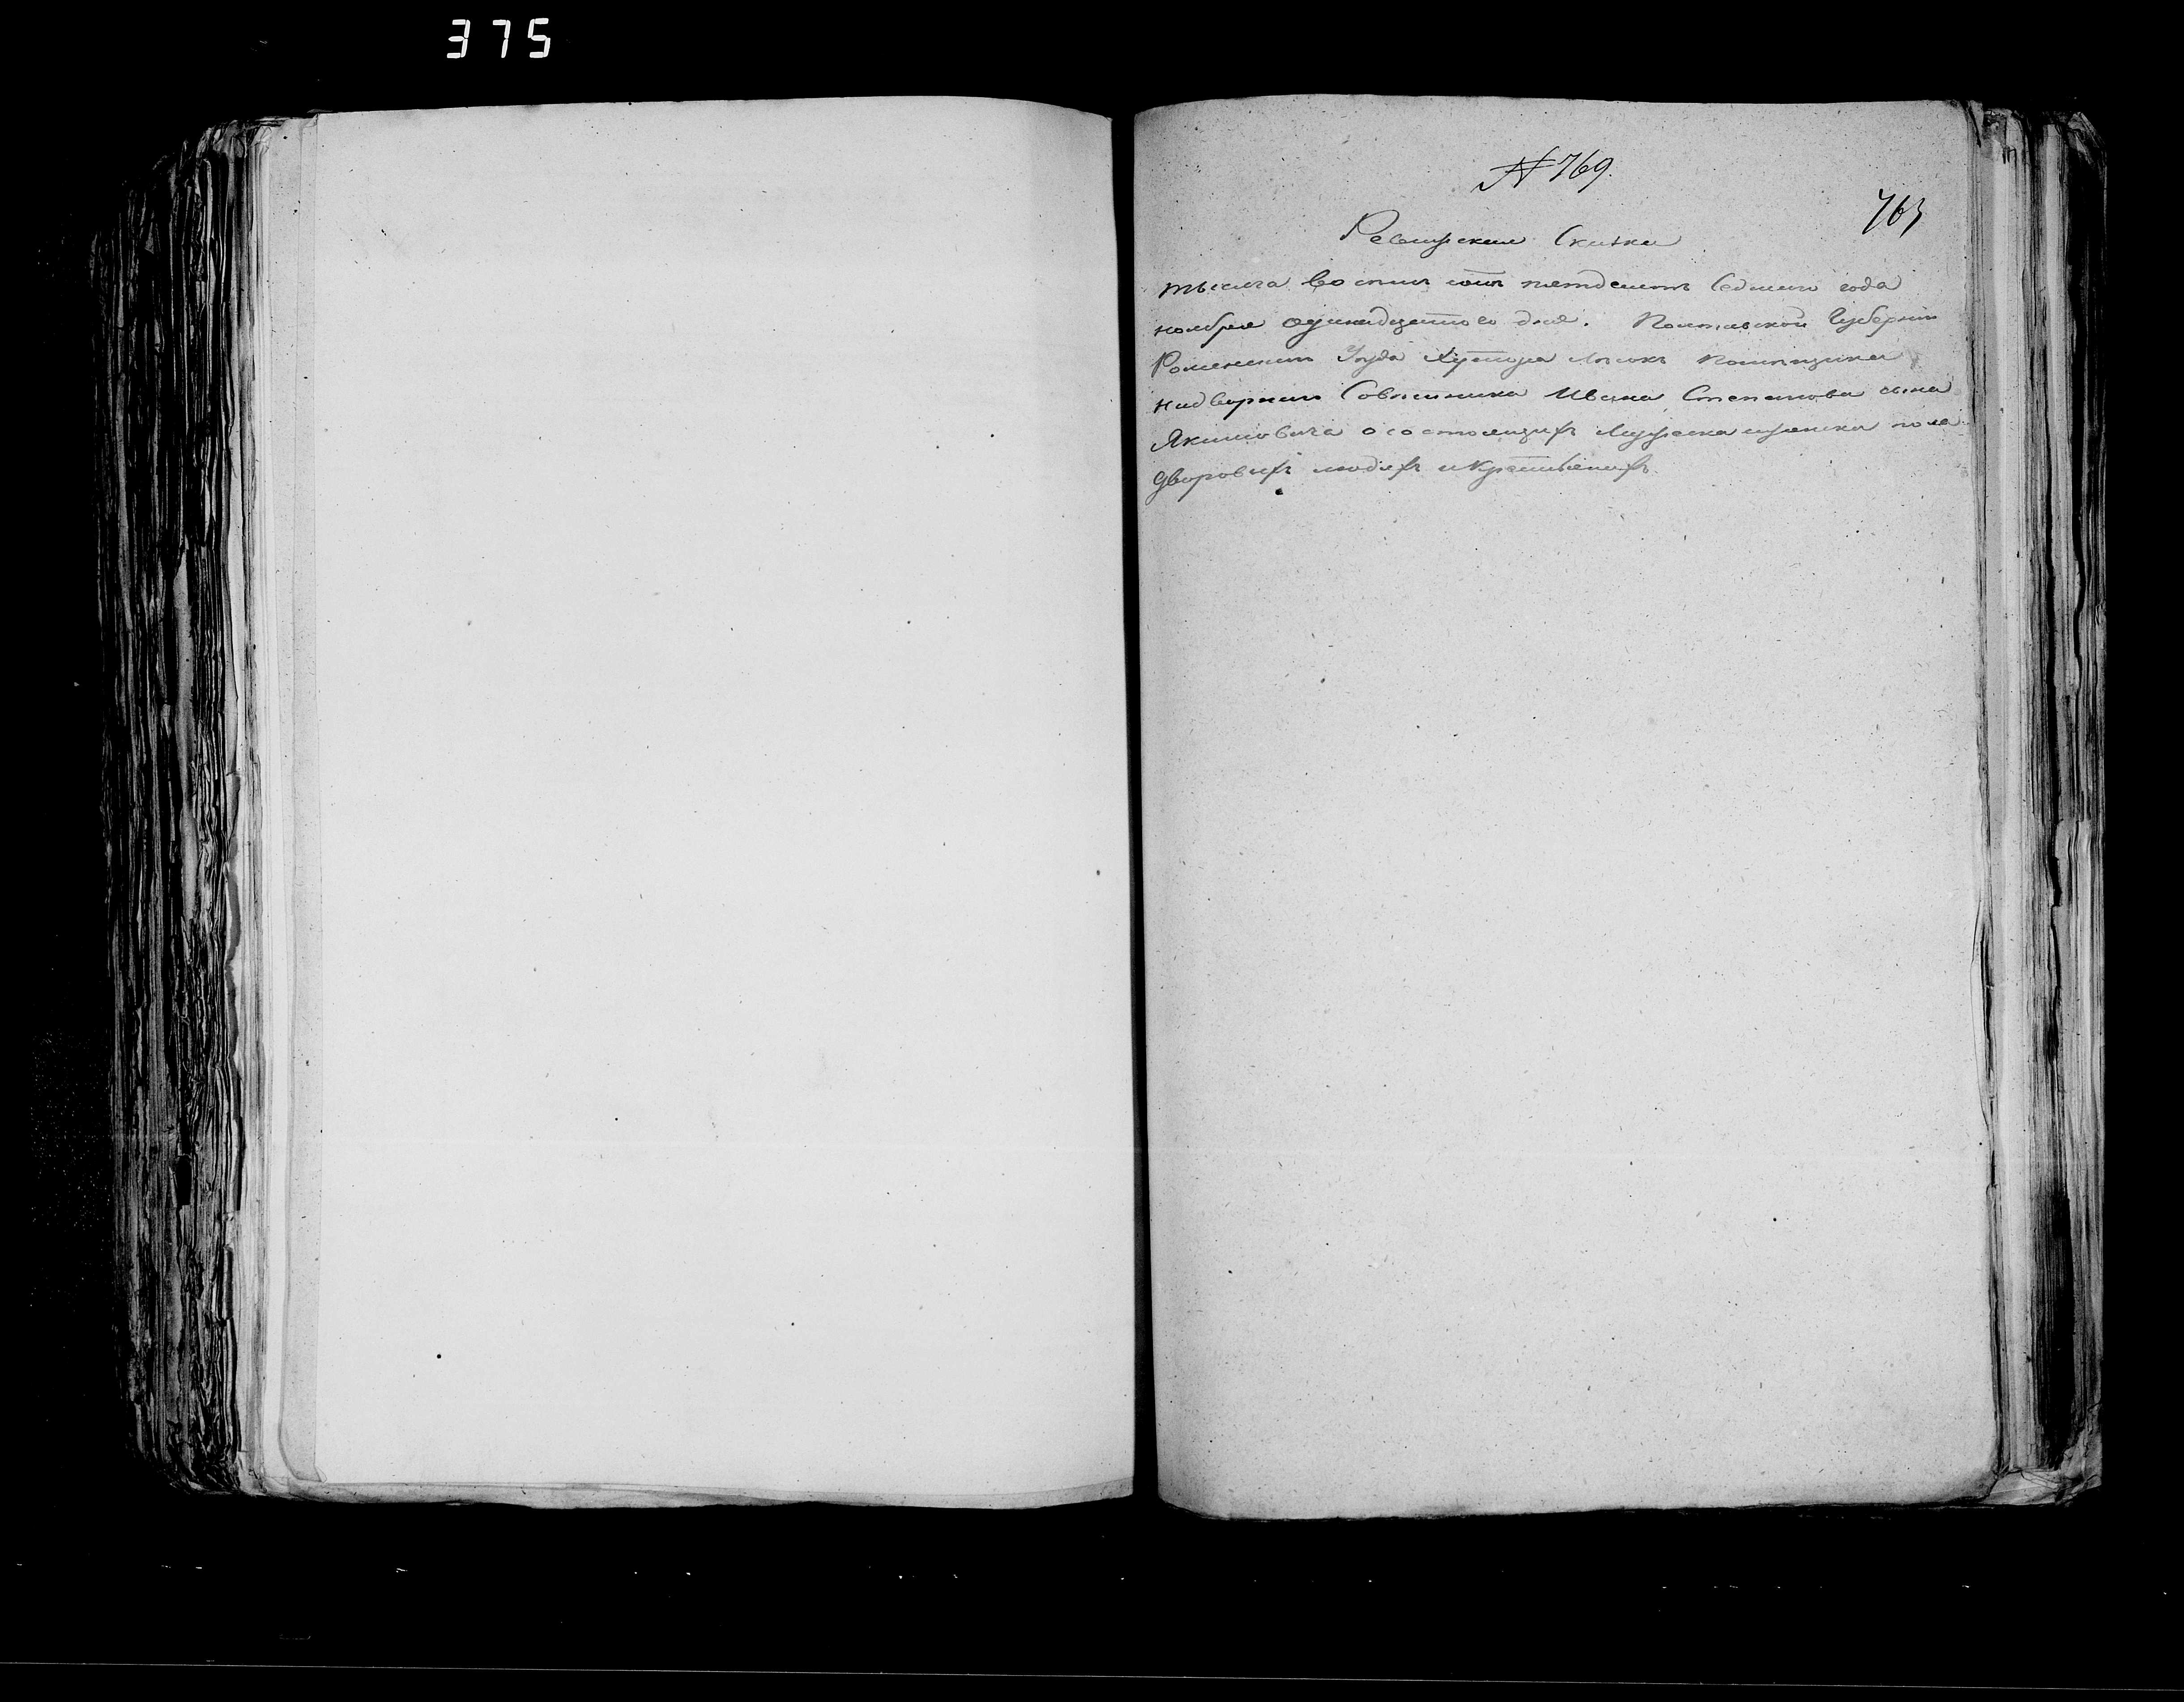 375
№ 769.
763
Ревизская Сказка
тысяча восемь сотъ пятдесятъ Седмаго года
ноября одинадцатого дня. Полтавской Губерніи
Роменскаго Уезда Хутора помещика
надворнаго Советника Ивана Степанова сына
Якимовича о состоящихъ Мужеска и женска пола
дворовыхъ людяхъ и крестьянахъ.